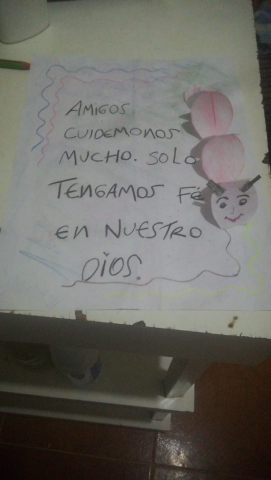 AMIGOS
CUIDEMONOS
MUCHO. SOLO
TENGAMOS Fé
EN NUESTRO
DIOS.